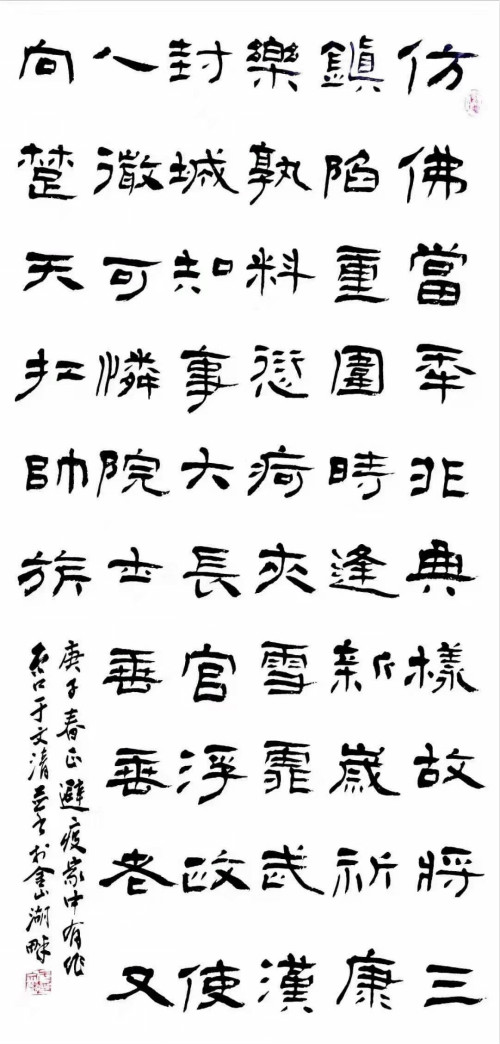 仿佛當年非典樣故將三
鎮陷重圍時逢新歲祈康
樂孰料愆疴夾雪霏武漢
封城知事大長官浮政使
人微可憐院士垂垂老又
向楚天扛帥旗
庚子春正避疫家中有作
京口于文清并書於金山湖畔